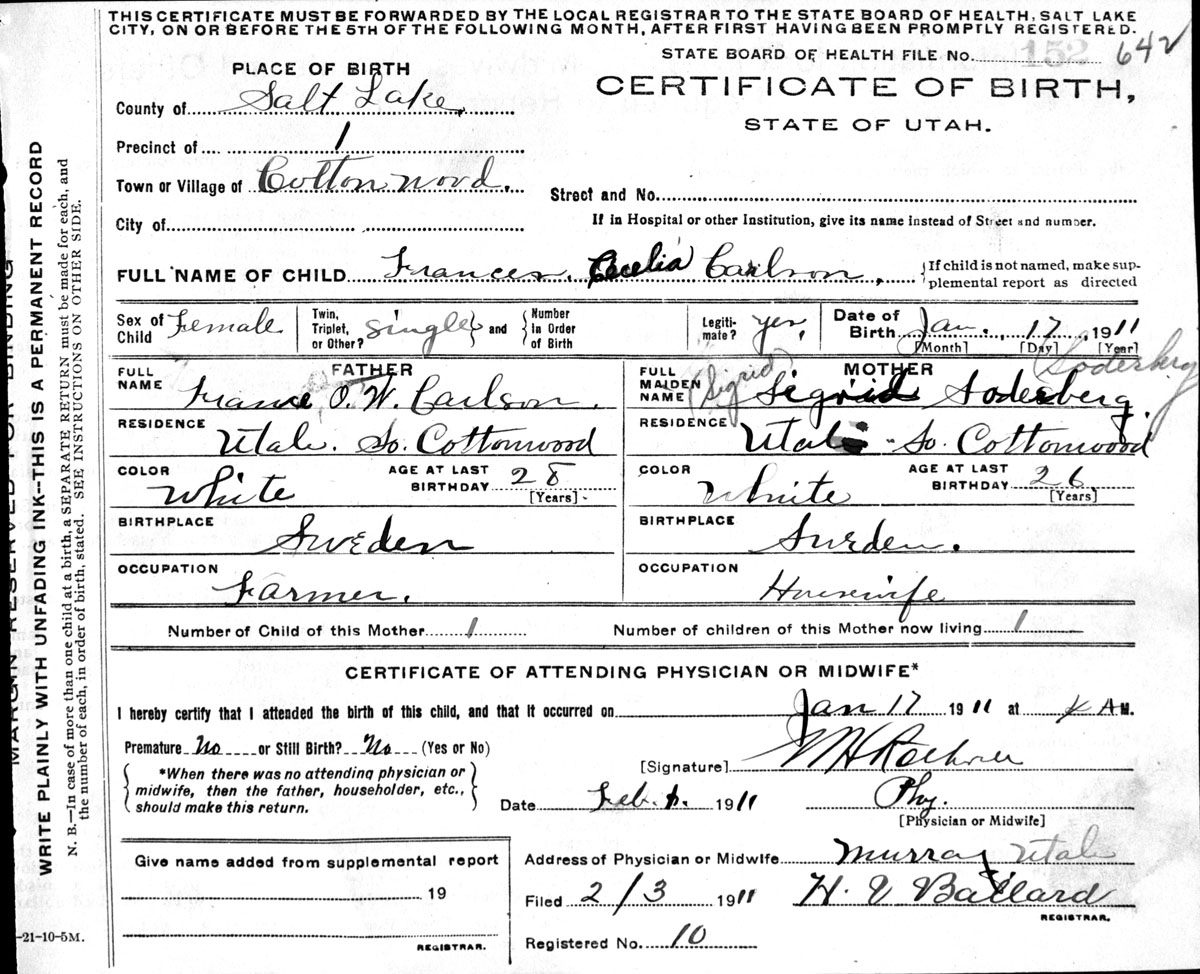 THIS CERTIFICATE MUST BE FORWARDED BY THE LOCAL REGISTRAR TO THE STATE BOARD OF HEALTH, SALT LAKE
CITY, ON OR BEFORE THE 5TH OF THE FOLLOWING MONTH, AFTER FIRST HAVING BEEN PROMPTLY REGISTERED.
STATE BOARD OF HEALTH FILE No. 152 642
PLACE OF BIRTH
CERTIFICATE OF BIRTH,
STATE OF UTAH.
County of Salt Lake,
Precinct of 1
Town or Village of Cottonwood.
Street and No.
City of
If in Hospital or other Institution, give its name instead of Street and number.
FULL NAME OF CHILD Frances. Cecelia Carlson, If child is not named, make sup-
plemental report as directed
Sex of Child Female
Twin, Triplet, or Other? single and Number In Order of Birth
Legiti-mate? yes,
Date of Birth Jan. 17, 1911
[Month] [Day] [Year]
FATHER
FULL NAME O. W. Carlson.
RESIDENCE Utah. So. Cottonwood
COLOR White
AGE AT LAST BIRTHDAY 28
[Years]
BIRTHPLACE Sweden
OCCUPATION Farmer.
MOTHER
Soderberg
FULL MAIDEN NAME (Sigrid) Sigrid Soderberg.
RESIDENCE Utah So. Cottonwood
COLOR White
AGE AT LAST BIRTHDAY 26
[Years]
BIRTHPLACE Sweden.
OCCUPATION Housewife
Number of Child of this Mother 1
Number of children of this Mother now living 1
CERTIFICATE OF ATTENDING PHYSICIAN OR MIDWIFE*
I hereby certify that I attended the birth of this child, and that it occurred on Jan 17 1911 at 4 A M.
Premature No or Still Birth? No (Yes or No)
[Signature]
*When there was no attending physician or
midwife, then the father, householder, etc.,
should make this return.
Date Feb. 1911
Phy.
[Physician or Midwife]
Give name added from supplemental report
19
REGISTRAR.
Address of Physician or Midwife Murray Utah
Filed 2/3 1911 H. V Ballard
REGISTRAR.
Registered No. 10
-21-10-5M.
MARGIN RESERVED FOR BINDING
WRITE PLAINLY WITH UNFADING INK--THIS IS A PERMANENT RECORD
N. B.—In case of more than one child at a birth, a SEPARATE RETURN must be made for each, and
the number of each, in order of birth, stated. SEE INSTRUCTIONS ON OTHER SIDE.